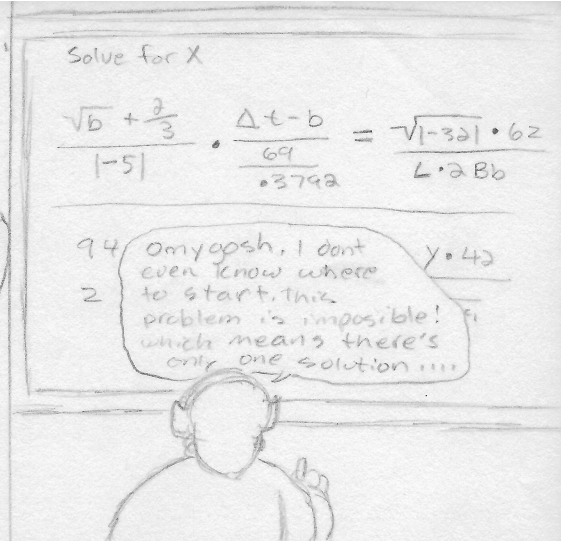 Solve for X
√b + 2/3 / |-5| • Δt-b / 69/.3792 = √|-32| • 62 / L•2Bb
94
y • 42
2
omygosh, I dont
even know where
to start. This
problem is imposible!
which means there's
only one solution ....